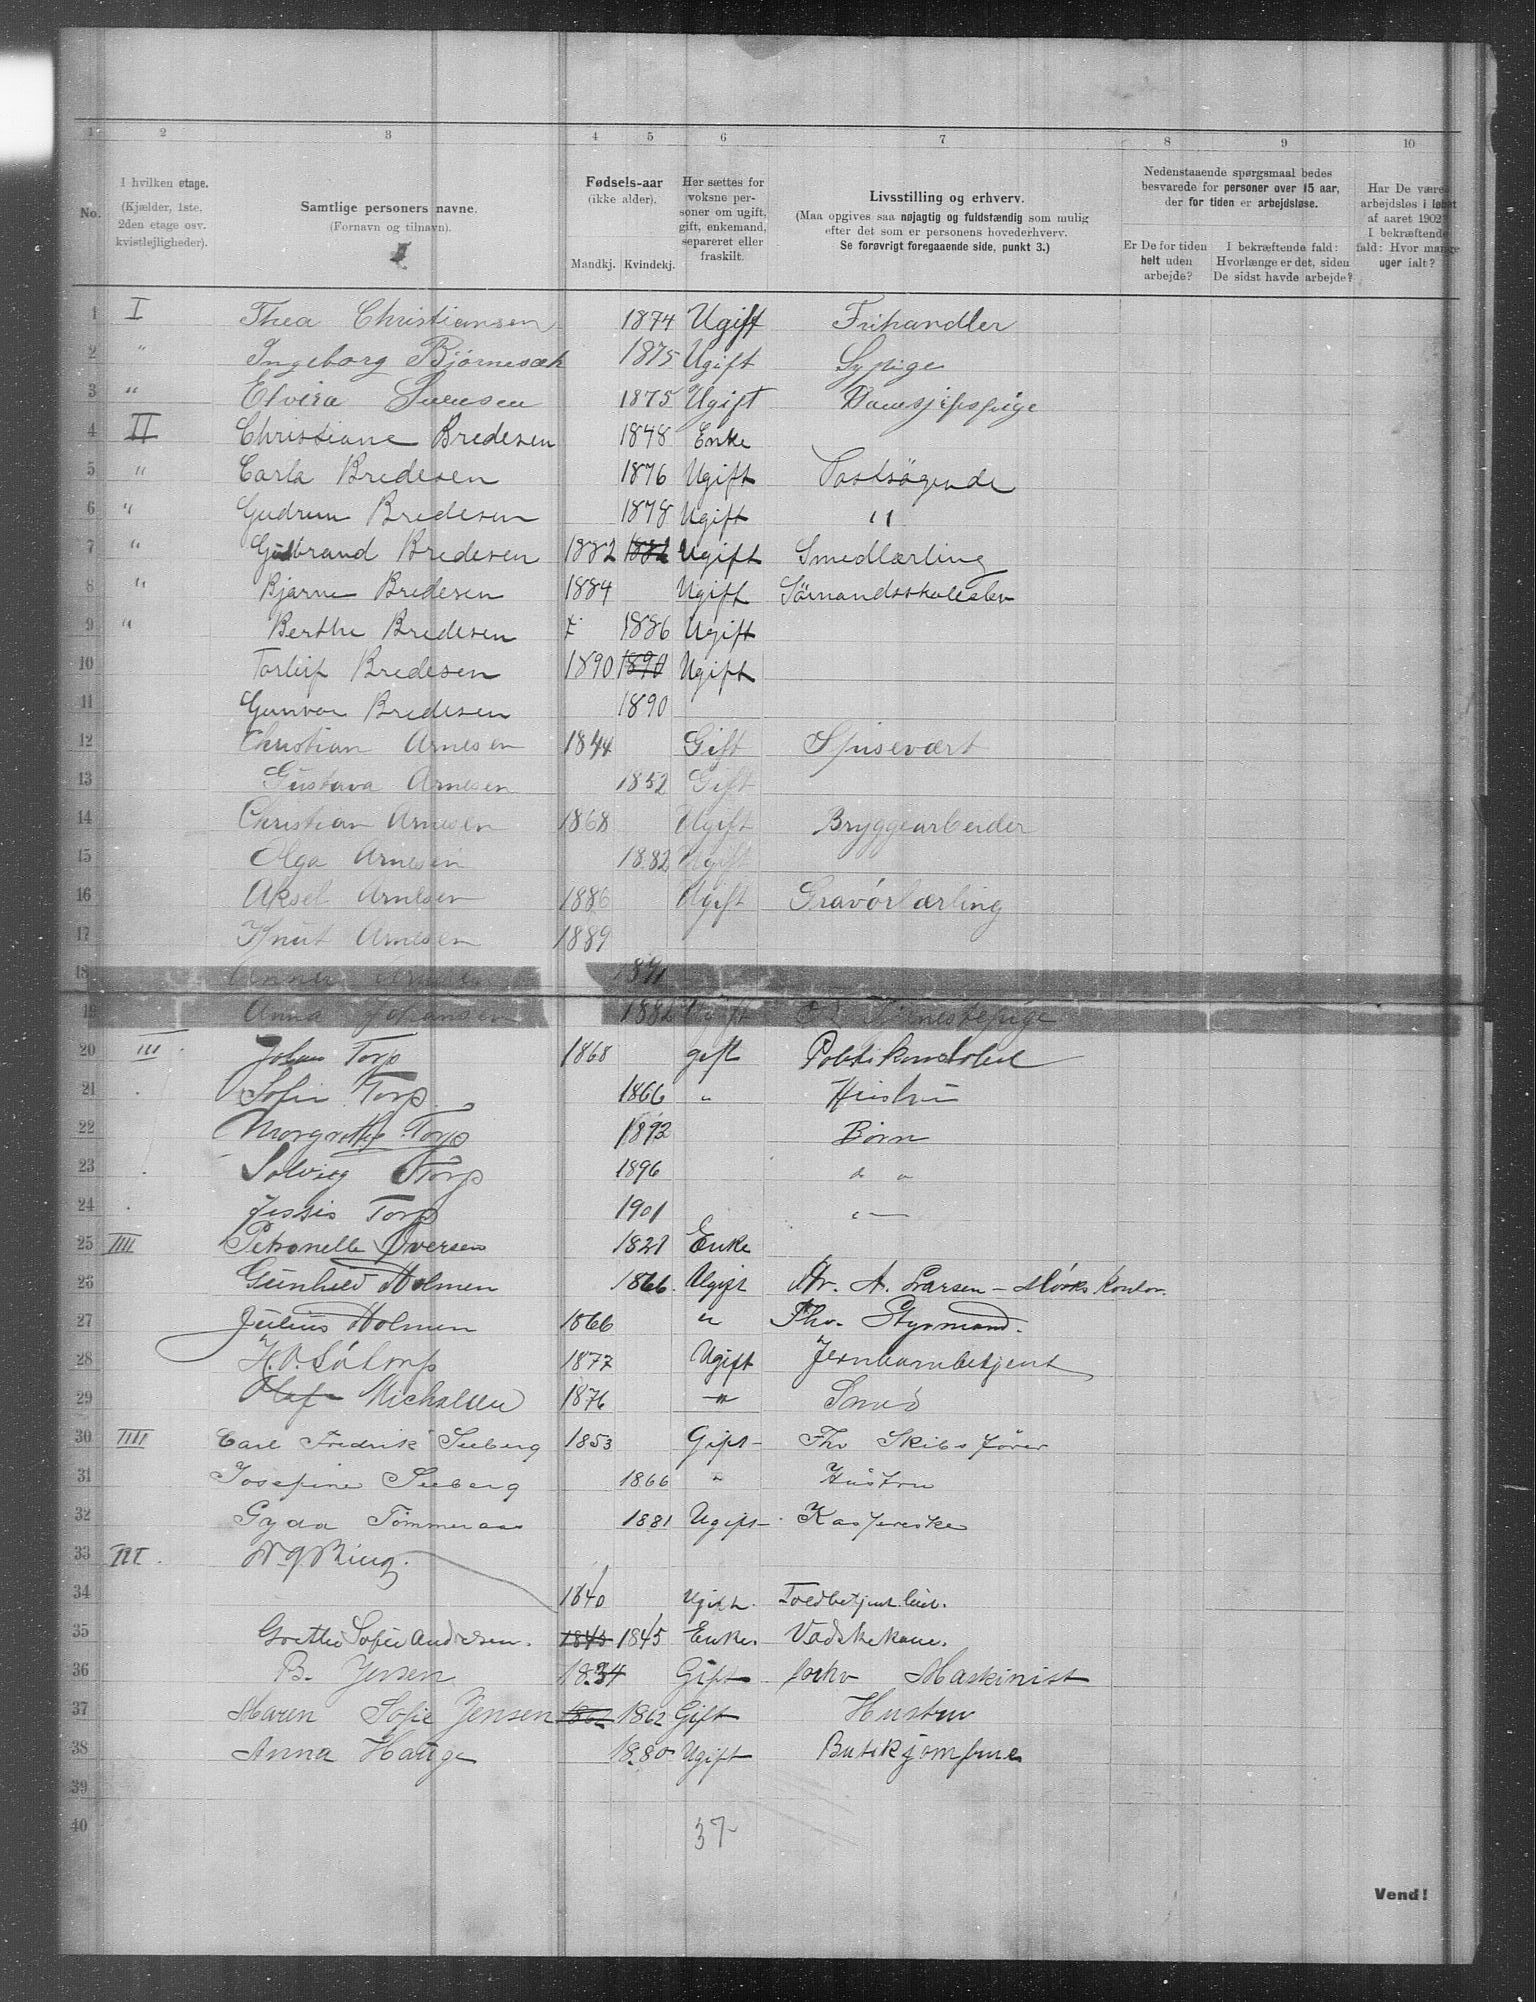 1 2 3 4 5 6 7 8 9 10
No.
I hvilken etage.
(Kjælder, 1ste.
2den etage osv.
kvistlejligheder).
Samtlige personers navne.
(Fornavn og tilnavn).
Fødsels-aar
(ikke alder).
Mandkj. Kvindekj.
Her sættes for
voksne per-
soner om ugift,
gift, enkemand,
separeret eller
fraskilt.
Livsstilling og erhverv.
(Maa opgives saa nøjagtig og fuldstændig som mulig
efter det som er personens hovederhverv.
Se forøvrigt foregaaende side, punkt 3.)
Nedenstaaende spørgsmaal bedes
besvarede for personer over 15 aar,
der for tiden er arbejdsløse.
Er De for tiden
helt uden
arbejde?
I bekræftende fald:
Hvorlænge er det, siden
De sidst havde arbejde?
Har De været
arbejdsløs i løbet
af aaret 1902?
I bekræftende
fald: Hvor mange
uger ialt?
1 I Thea Christiansen 1874 Ugift Frihandler
2 " Ingeborg 1875 Ugift Sypige
3 " Elvira Svensen 1875 Ugift
4 II Christiane Bredesen 1848 Enke
5 " Carla Bredesen 1876 Ugift Postsøgende
6 " Gudrun Bredesen 1878 Ugift "
7 " Gulbrand Bredesen 1882 1882 Ugift Smedlærling
8 " Bjarne Bredesen 1884 Ugift Sömandsskoleelev
9 " Berthe Bredesen 1886 Ugift
10 Torleif Bredesen 1890 1890 Ugift
11 Gunvor Bredesen 1890
12 Christian Arnesen 1844 Gift Spisevært
13 Gustava Arnesen 1852 Gift
14 Christian Arnesen 1868 Ugift Bryggearbeider
15 Olga Arnesen 1882 Ugift
16 Aksel Arnesen 1886 Ugift Gravörlærling
17 Knut Arnesen 1889
18 Arnesen 1891
19 Anna Johansen 1882 Ugift Tjenestepige
20 III Johan Torp 1868 gift Politikonstabel
21 Sofie Torp 1866 " Hustru
22 Margrethe Torp 1892 Børn
23 Solveig Torp 1896 " "
24 Torp 1901 "
25 IIII Petronelle Iversen 1821 Enke
26 Gunhild Holmen 1866. Ugift A. Larsen – Mørks Kontor.
27 Julius Holmen 1866 " Fhv. Styrmand.
28 1877 Ugift Jernbanebetjent
29 Olaf Michalsen 1876 " Smed
30 IIIII Carl Fredrik Seeberg 1853 Gift Fhv Skibsfører
31 Josefine Seeberg 1866 " Hustru
32 Gyda Tömmeraas 1881 Ugift Kassererske
33 III. Ring.
34 1840 Ugift. Toldbetjent
35 Grethe Sofie Andersen. 1845 1845 Enke. Vadskekone.
36 B. Jensen 1834 Gift forhv Maskinist
37 Maren Sofie Jensen 1862 1862 Gift Hustru
38 Anna Hauge 1880 Ugift Butikjomfrue
39
40 37
Vend!